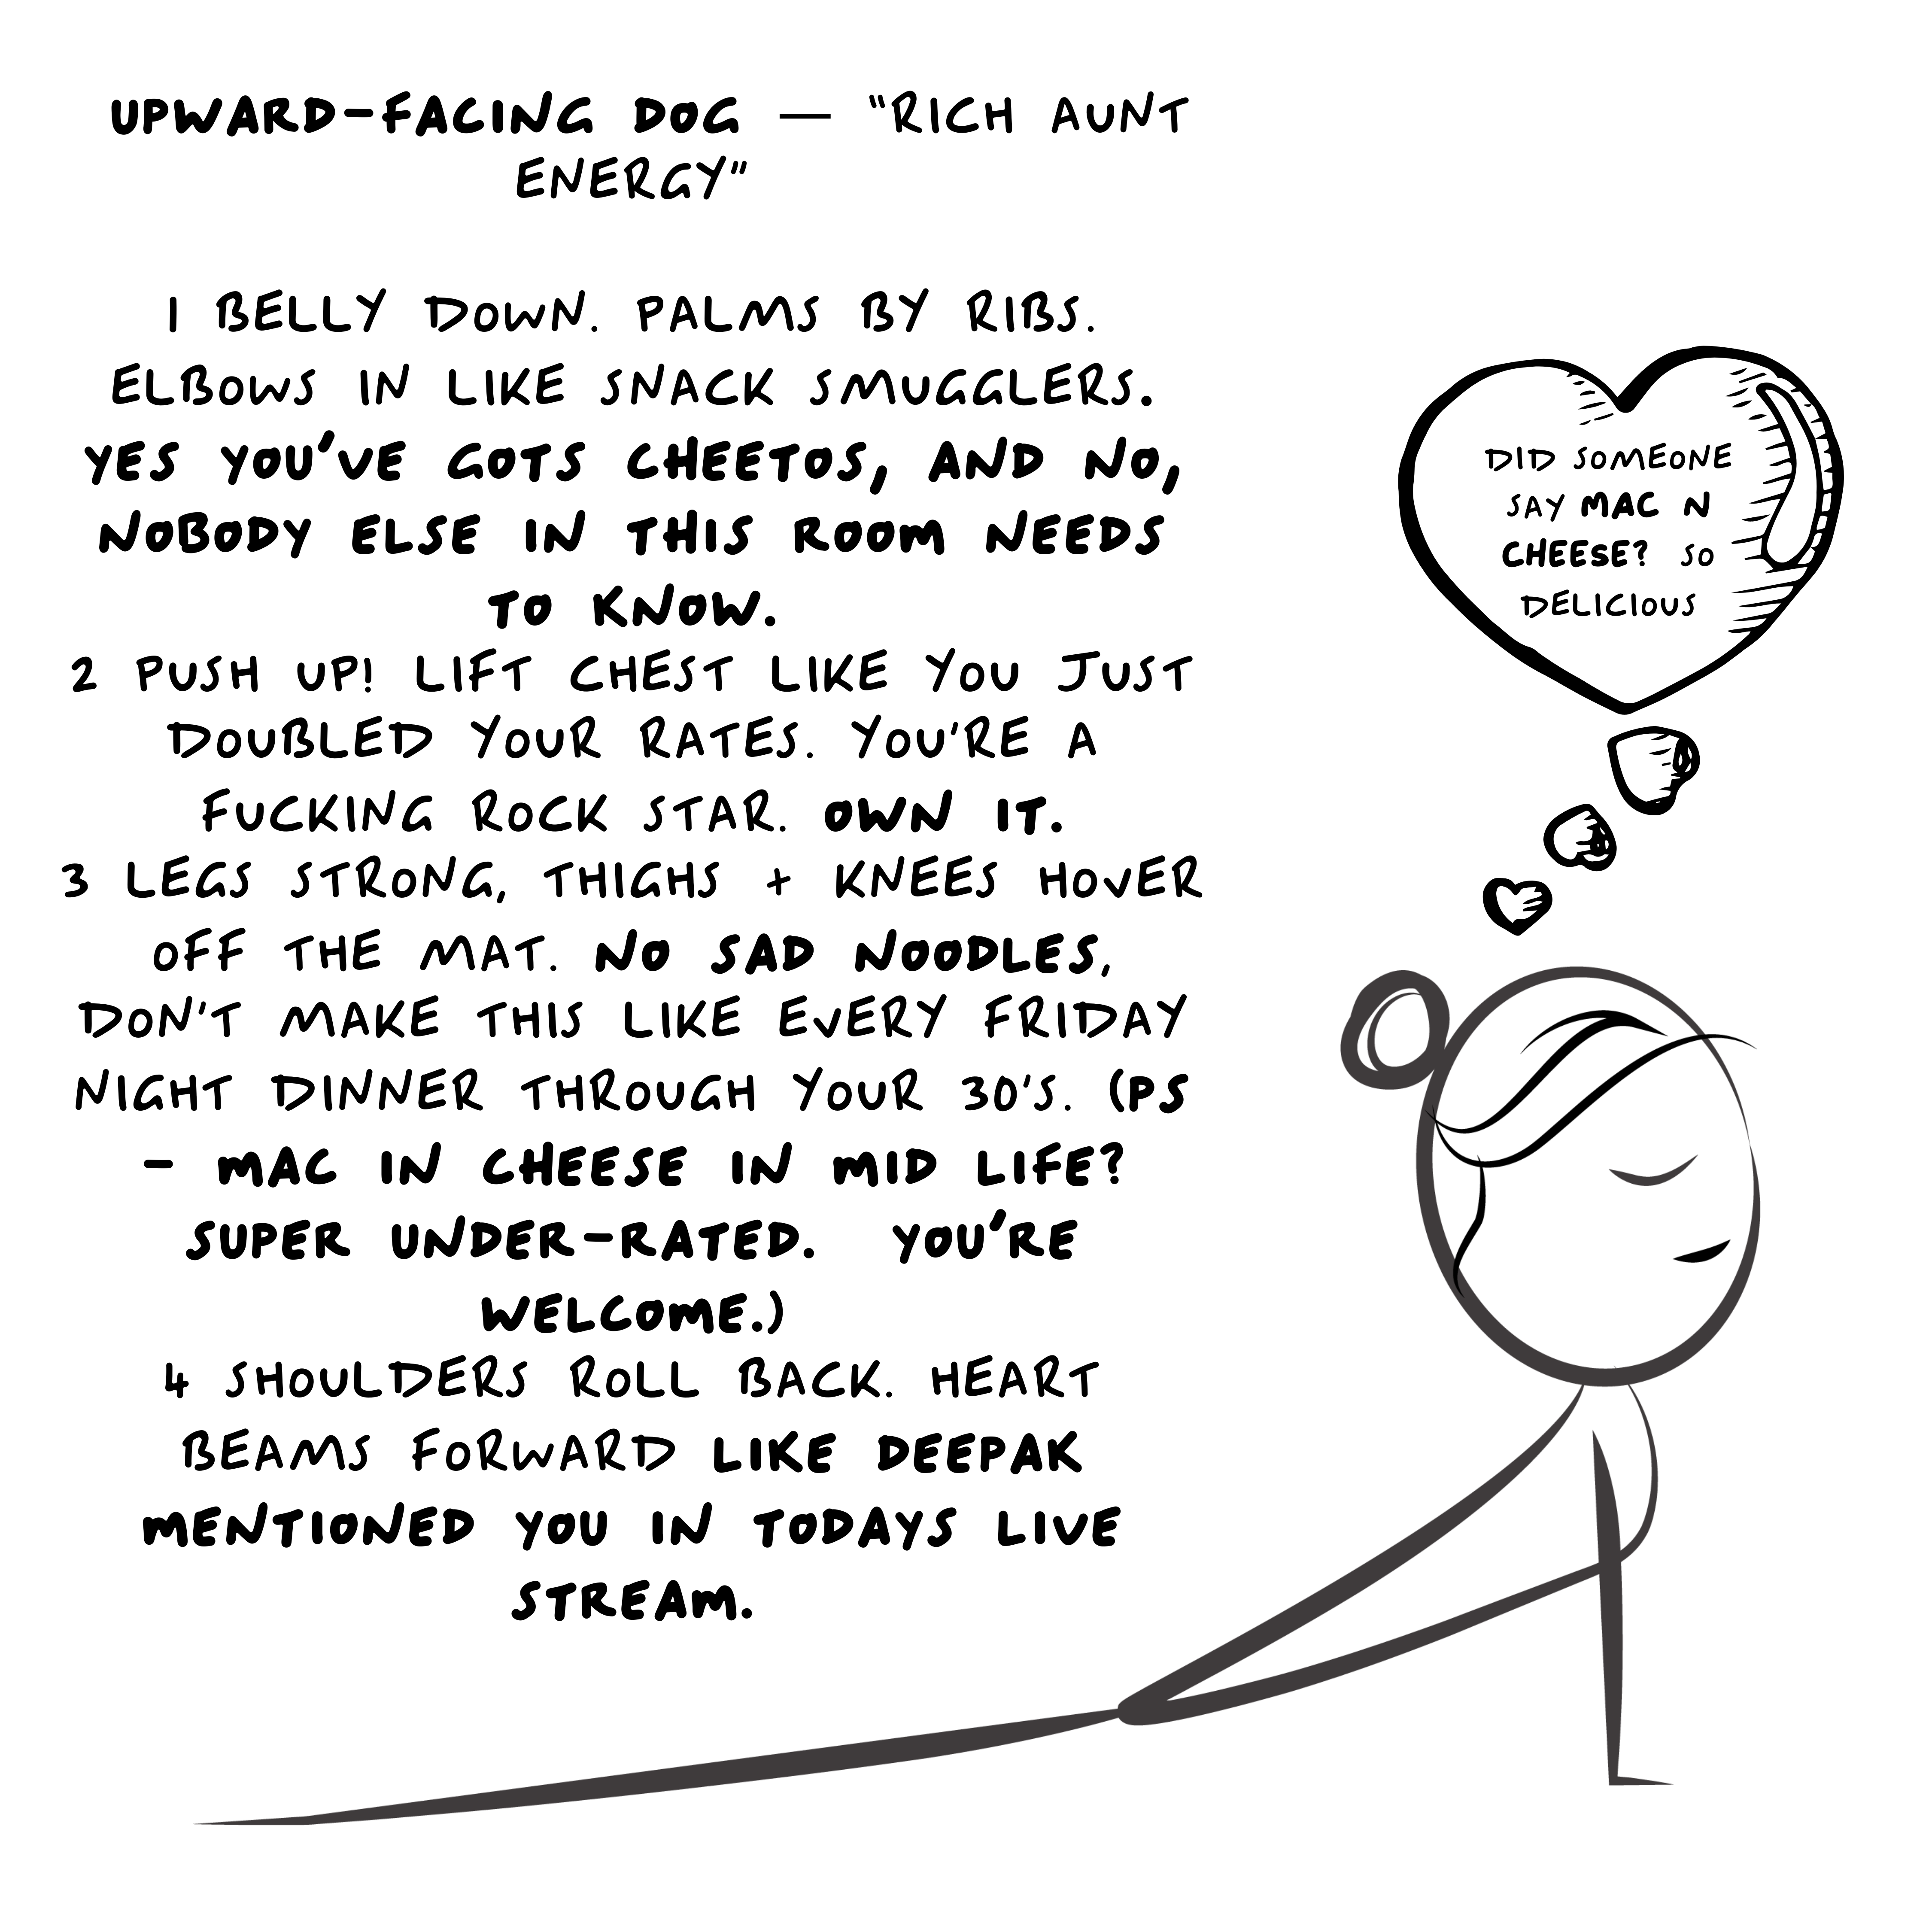 UPWARD-FACING DOG — "RICH AUNT
ENERGY"
1 BELLY DOWN. PALMS BY RIBS.
ELBOWS IN LIKE SNACK SMUGGLERS.
YES YOU'VE GOTS CHEETOS, AND NO,
NOBODY ELSE IN THIS ROOM NEEDS
TO KNOW.
2 PUSH UP! LIFT CHEST LIKE YOU JUST
DOUBLED YOUR RATES. YOU'RE A
FUCKING ROCK STAR. OWN IT.
3 LEGS STRONG, THIGHS + KNEES HOVER
OFF THE MAT. NO SAD NOODLES,
DON'T MAKE THIS LIKE EVERY FRIDAY
NIGHT DINNER THROUGH YOUR 30'S. (PS
- MAC IN CHEESE IN MID LIFE?
SUPER UNDER-RATED. YOU'RE
WELCOME.)
4 SHOULDERS ROLL BACK. HEART
BEAMS FORWARD LIKE DEEPAK
MENTIONED YOU IN TODAYS LIVE
STREAM.
DID SOMEONE
SAY MAC N
CHEESE? SO
DELICIOUS